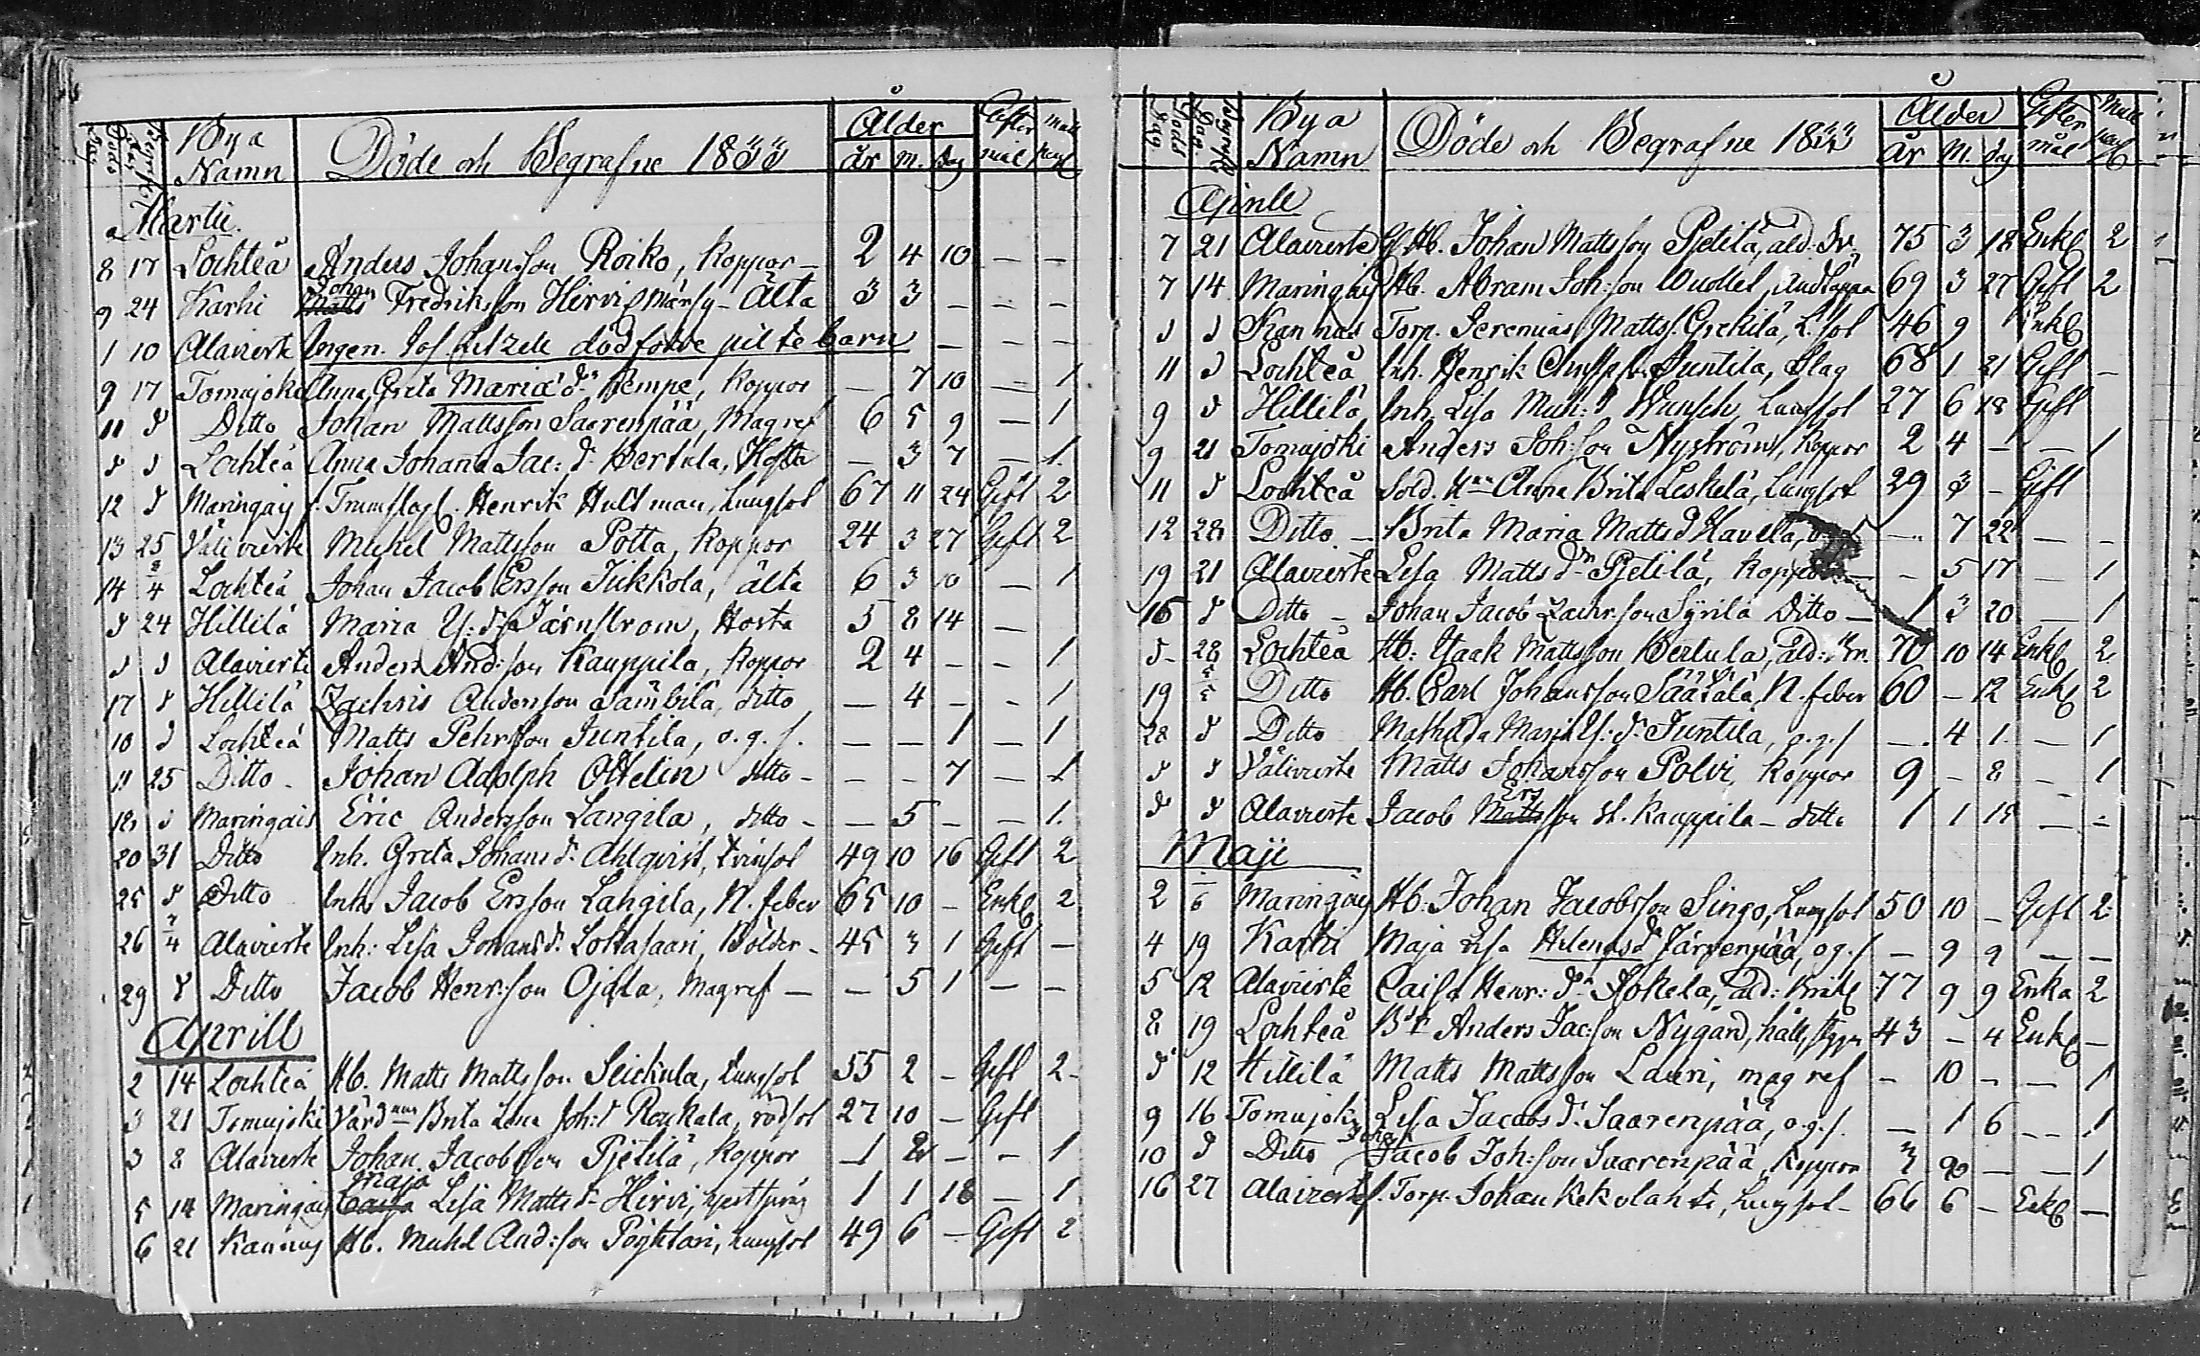 Döds Dag Begrafn. Dag Bya Namn Döde och Begrafne 1833 Ålder år m. dag Gifter mål
Martii.
8 17 Lochteå Anders Johansson Roiko, koppor – 2 4 10 – –
9 24 Karhi Johan Matts Fredriksson Hirvi – Älta 3 3 – – –
1 10 Alavirte dödfödde pilte barn – – –
9 17 Tomujoki Anna Greta Mariæ dr Pempe, koppor – 7 10 – 1
11 d Ditto Johan Mattsson Saarenpää, Magref 6 5 9 – 1
d d Lochteå Anna Johanna Jac: dr Bertula, Hosta – 3 7 – 1.
12 d Maringais f. Trumslag. Henrik Hultman, Lungsot 67 11 24 Gift 2
13 25 Välivirte Michel Mattsson Potta, koppor 24 3 27 Gift 2
14 8/4 Lochteå Johan Jacob Ersson Jukkola, älta 6 3 10 – 1
d 24 Hillilä Maria Y: dr Järnstrom, Hosta 5 8 14 –
d d Alavirte Anders And:son Kauppila, koppor 2 4 – – 1
17 d Hillilä Zachris Andersson Sämbilä, ditto – 4 – – 1
10 d Lochteå Matts Pehrsson Juntila, o.g.s. – – 1 – 1
11 25 Ditto – Johan Adolph Ottelin ditto – – – 7 – 1
18 d Maringais Eric Andersson Langila, ditto – – 5 – – 1.
20 31 Ditto Inh. Greta Johans dr Ahlqvist, Tvinsot 49 10 16 Gift 2
25 d Ditto Inh. Jacob Ersson Langila, N. feber 65 10 – Enkl 2
26 7/4 Alavirte Inh: Lisa Johans dr Lokasaari, Bölder – 45 3 1 Gift –
29 d Ditto Jacob Henr:son Ojala, Magref – – 5 1 – –
Aprill
2 14 Lochteå Hb. Matts Mattsson Seickula, Lungsot 55 2 – Gift 2 –
3 21 Tomujoki Brita Lena Joh: d Roukala, rödsot 27 10 – Gift
3 8 Alavirte Johan Jacobsson Pjetilä, koppor 1 2 – – 1
5 14 Maringais Maja Caisa Lisa Matts dr Hirvi, 1 1 18 – 1
6 21 Kannus Hb. Michel And:son Pöyhtari, Lungsot 49 6 – Gift 2
Döds Dag. Begrafn. Dag. Bya Namn Döde och Begrafne 1833 Ålder år M. dag Gifter mål
Aprill
7 21 Alavirte Hb. Johan Mattsson Pjetilä, ald. 75 3 18 Enkl 2
7 14 Maringais Hb. Abram Joh:son Wuollet, 69 3 27 Gift 2
d d Kannus Torp. Jeremias Matts. Grekilä, L.sot 46 9 Enkl
11 d Lochteå Inh. Henrik Juntila, Slag 68 1 21 Gift –
9 d Hillilä Inh. Lisa Mich: d Lungsot 27 6 18 Gift
9 21 Tomujoki Anders Joh:son Nyström, koppor 2 4 – – 1
11 d Lochteå Sold. Anna Brita Leskelä, Lungsot 29 3 – Gift
12 28 Ditto – Brita Maria Matts d Havela, – 7 22 – –
19 21 Alavirte Lisa Matts dr Pjetilä, koppor – 5 17 – 1
16 d Ditto – Johan Jacob Zachr.son Syrilä Ditto – 1 3 20 – 1
d – 28 Lochteå Hb: Ysaak Mattsson Bertula, ald: 70 10 14 Enkl 2
19 5/5 Ditto Hb. Carl Johansson Säätälä, N. feber 60 – 12 Enkl 2
28 d Ditto Mathilda Maria Y: dr Juntila, o.g.s – 4 1 – 1
d d Välivirte Matts Johansson Polvi, koppor 9 – 8 – 1
d d Alavirte Jacob Ers Mattsson Kauppila – ditto 1 1 15 – –
Maji
2 6 Maringais Hb. Johan Jacobsson Singo, Lungsot 50 10 – Gift 2
4 19 Karhi Maja Lisa Helenas dr Järvenpää, o.g.s – 9 9 – –
5 12 Alavirte Caisa Henr: dr Jokela, ald: 77 9 9 Enka 2
8 19 Lochteå Anders Jac:son Nygård, 43 – 4 Enkl –
d 12 Hillilä Matts Mattsson Lauri, magref – 10 – – 1
9 16 Tomujoki Lisa Jacobs dr Saarenpää, o.g.s. – 1 6 – – 1
10 d Ditto Johan Jacob Joh:son Saarenpää, koppor 3 – – 1
16 27 Alavirte f. Torp. Johan Kekolahti, Lungsot – 66 6 – Enkl –